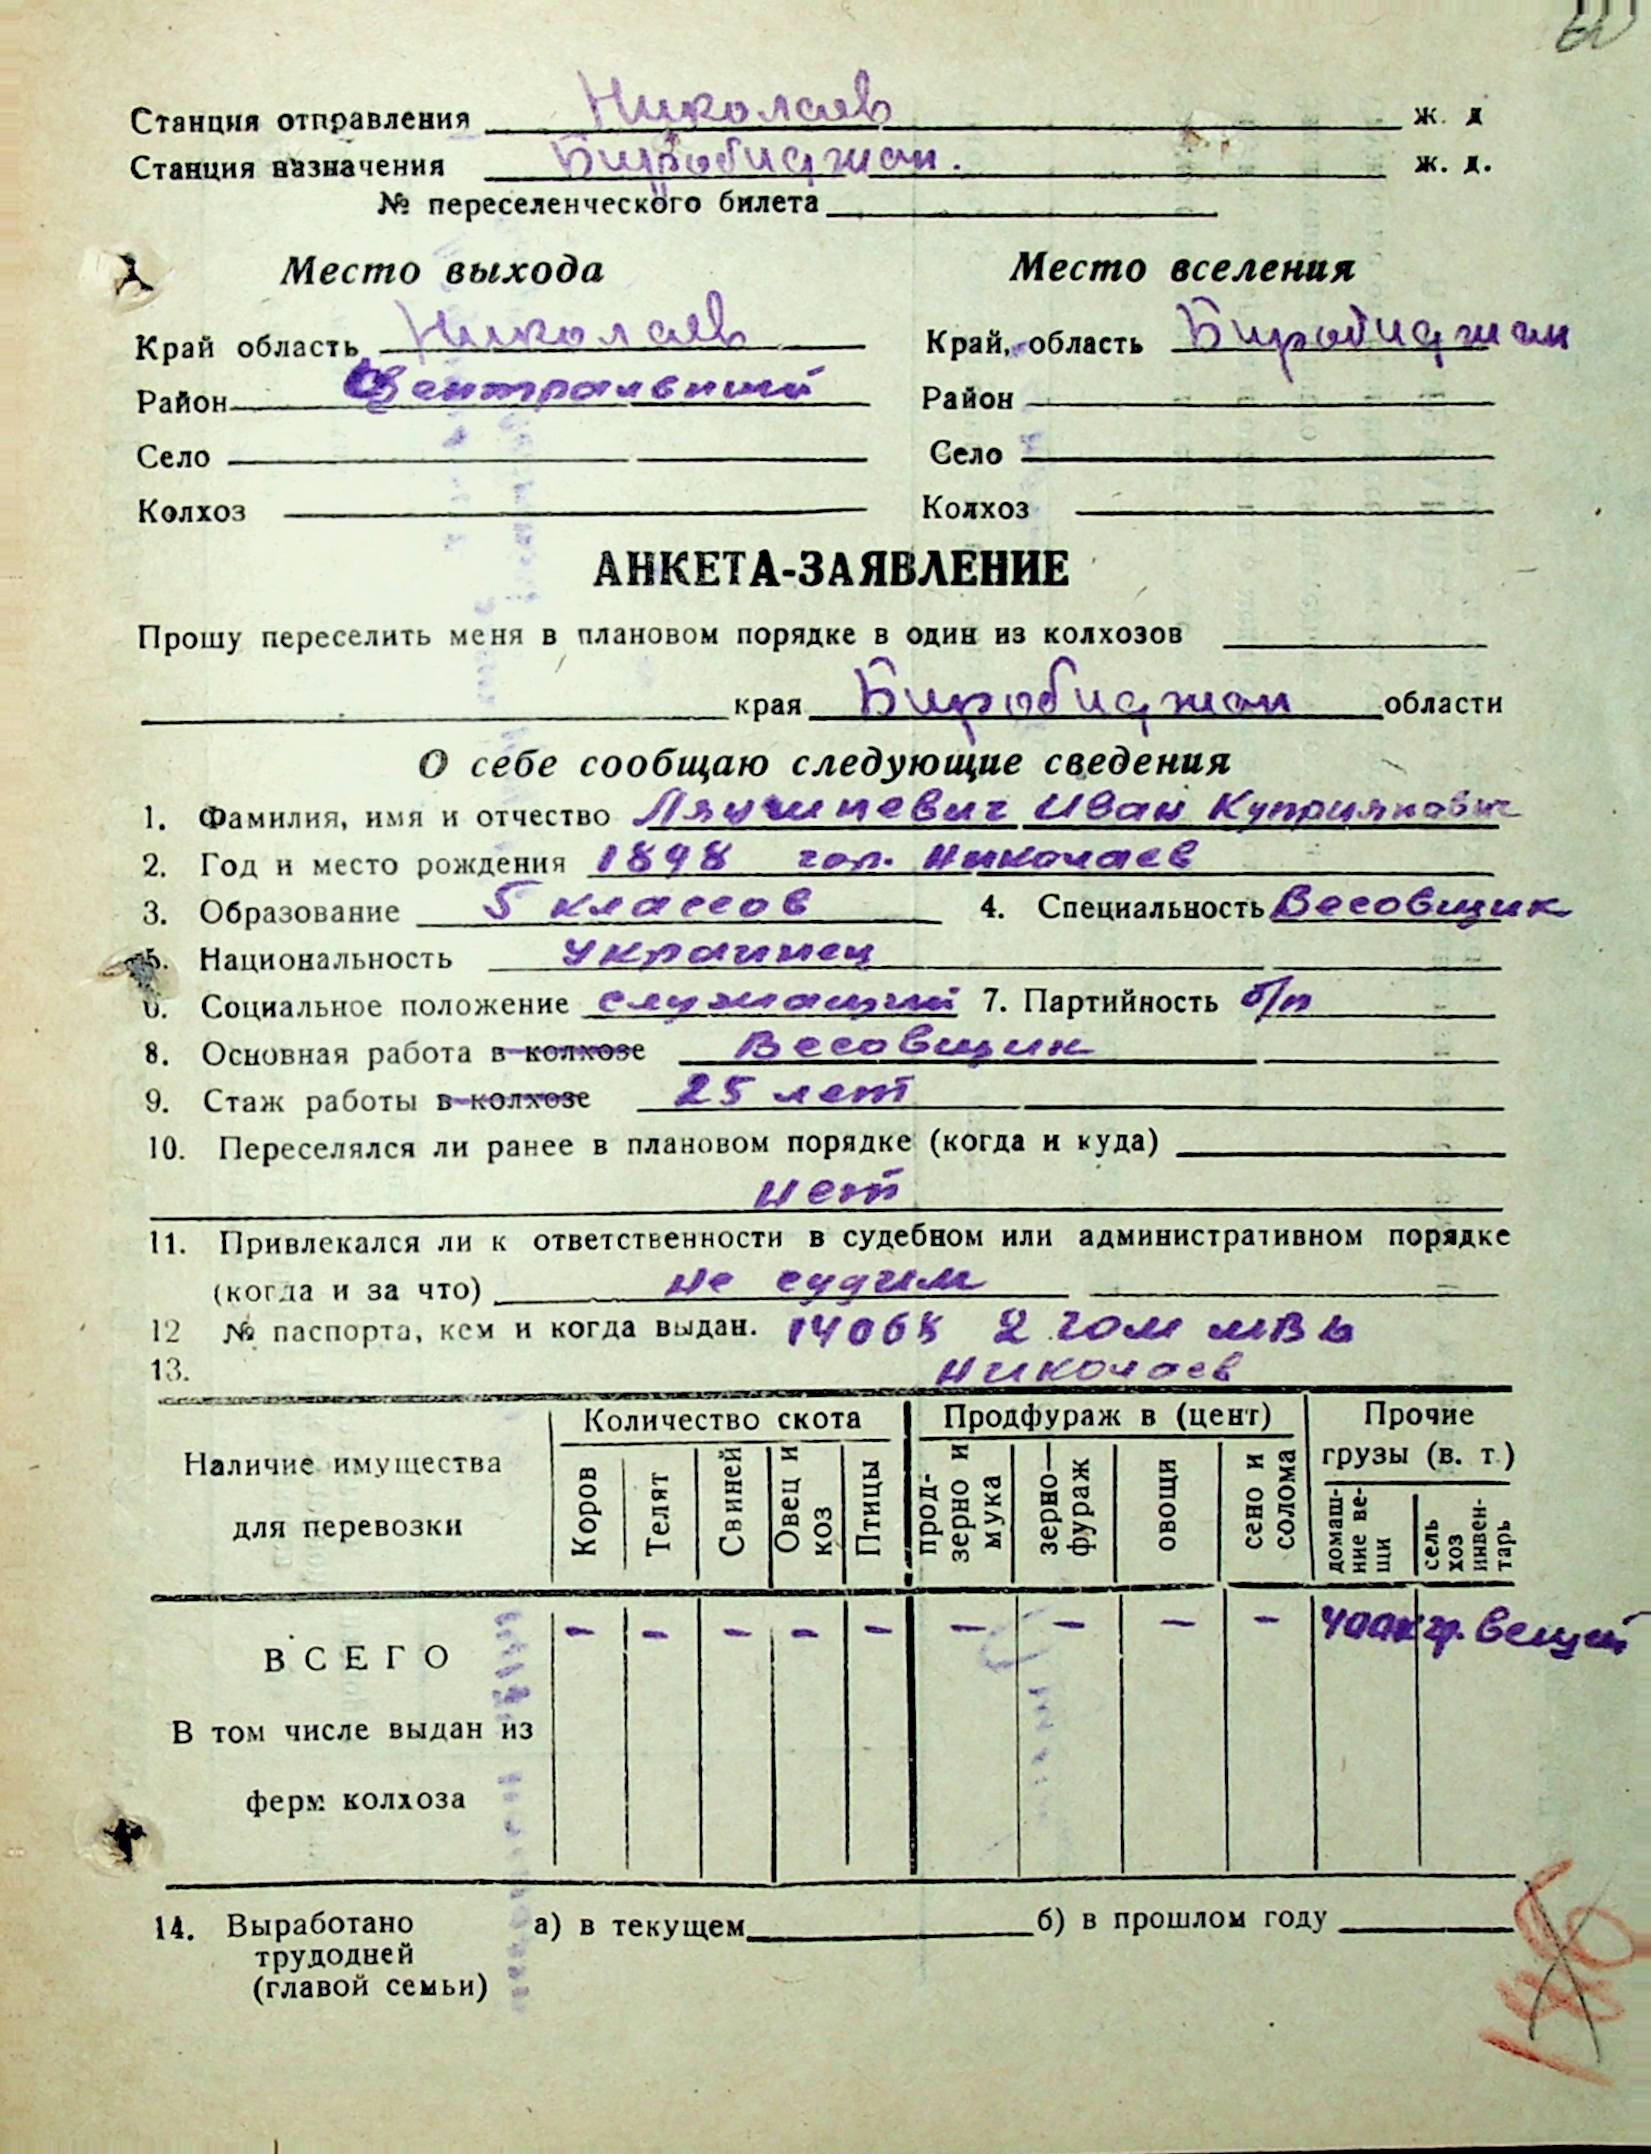 Станция отправления Николаев ж. д
Станция назначения Биробиджан. ж. д.
№ переселенческого билета
Место выхода Место вселения
Край область Николаев Край, область Биробиджан
Район Центральный Район
Село Село
Колхоз Колхоз
АНКЕТА-ЗАЯВЛЕНИЕ
Прошу переселить меня в плановом порядке в один из колхозов
края Биробиджан области
О себе сообщаю следующие сведения
1. Фамилия, имя и отчество Иван Куприянович
2. Год и место рождения 1898 гор. Николаев
3. Образование 5 классов 4. Специальность Весовщик
5. Национальность Украинец
6. Социальное положение служащий 7. Партийность б/п
8. Основная работа в колхозе Весовщик
9. Стаж работы в колхозе 25 лет
10. Переселялся ли ранее в плановом порядке (когда и куда)
нет
11. Привлекался ли к ответственности в судебном или административном порядке
(когда и за что) не судим
12 № паспорта, кем и когда выдан. 2 гом МВД
13. Николаев
Наличие имущества для перевозки
Количество скота Продфураж в (цент) Прочие грузы (в. т.)
Коров Телят Свиней Овец и коз Птицы прод-зерно и мука зерно-фураж овощи сено и солома домаш-ние ве-щи сель хоз инвен-тарь
ВСЕГО - - - - - - - - - 400 кгр. вещей
В том числе выдан из
ферм колхоза
14. Выработано а) в текущем б) в прошлом году
трудодней
(главой семьи)